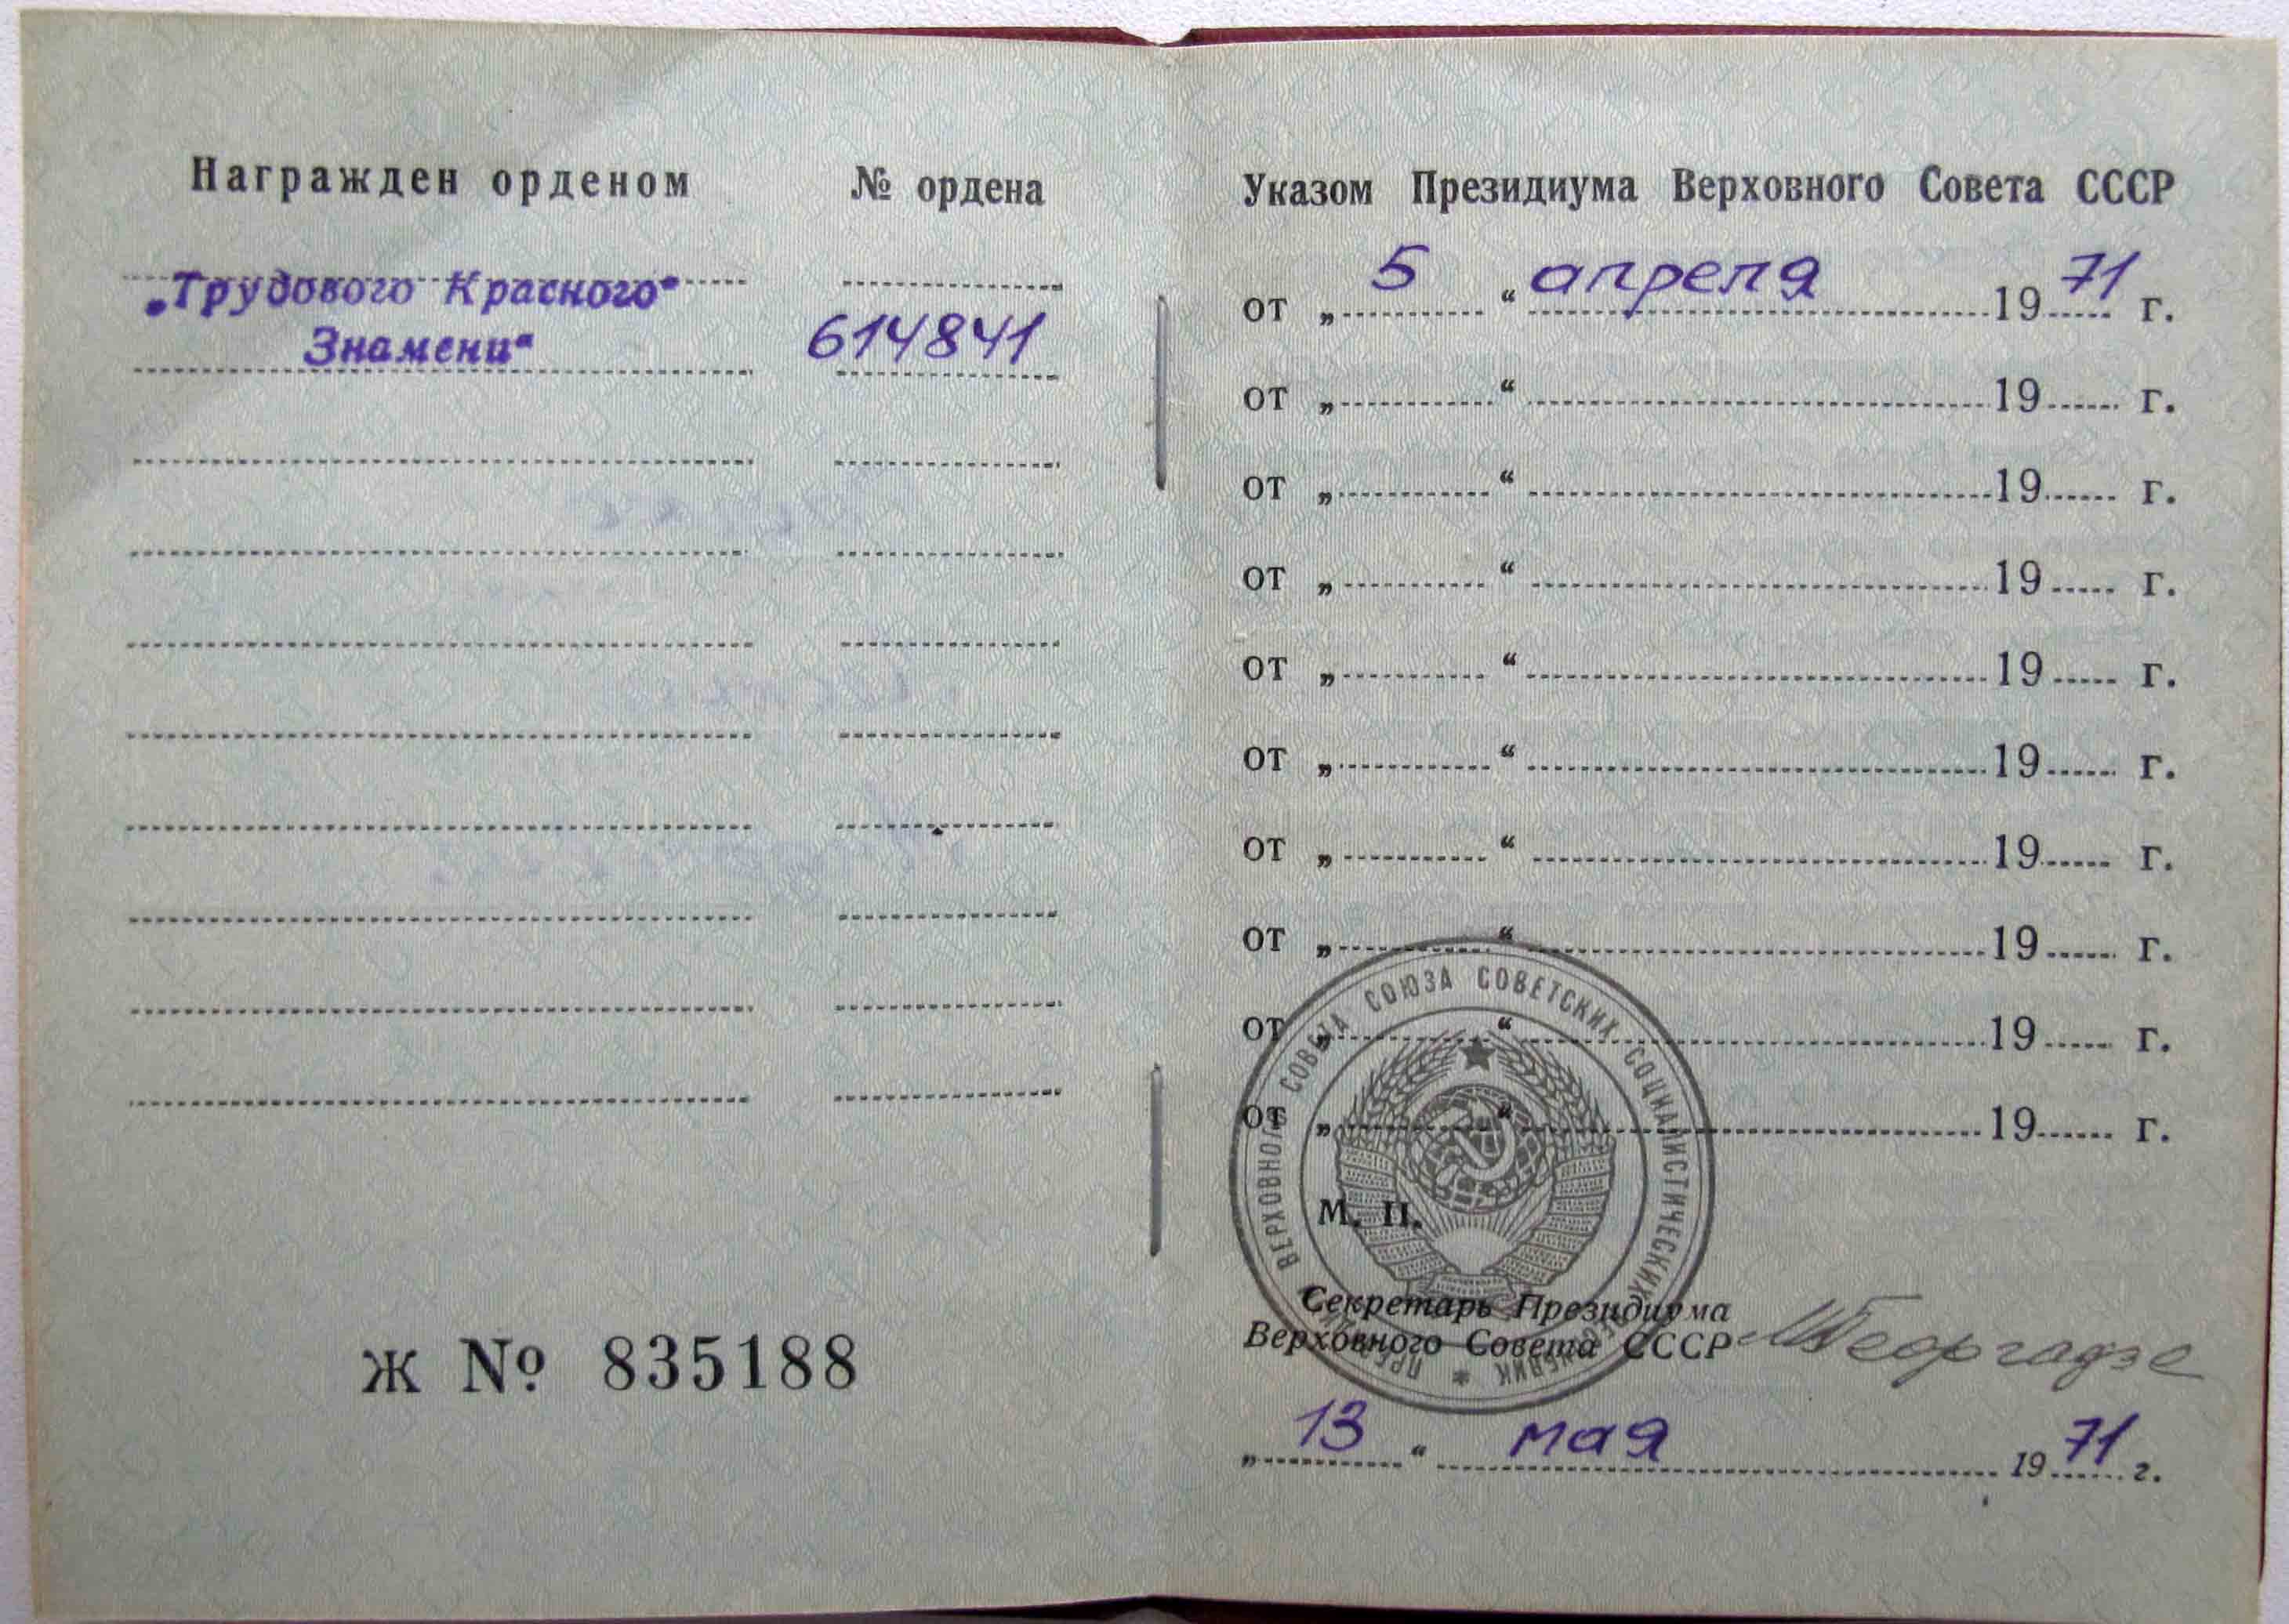 Награжден орденом № ордена
„Трудового Красного"
Знамени" 614841
ж № 835188
Указом Президиума Верховного Совета СССР
от „ 5 “ апреля 19 71 г.
от „ “ 19 г.
от „ “ 19 г.
от „ “ 19 г.
от „ “ 19 г.
от „ “ 19 г.
от „ “ 19 г.
от „ “ 19 г.
от „ “ 19 г.
от „ “ 19 г.
ВЕРХОВНОГО СОВЕТА СОЮЗА СОВЕТСКИХ СОЦИАЛИСТИЧЕСКИХ
М. П.
Секретарь Президиума
Верховного Совета СССР МГеоргадзе
„ 13 “ мая 19 71 г.